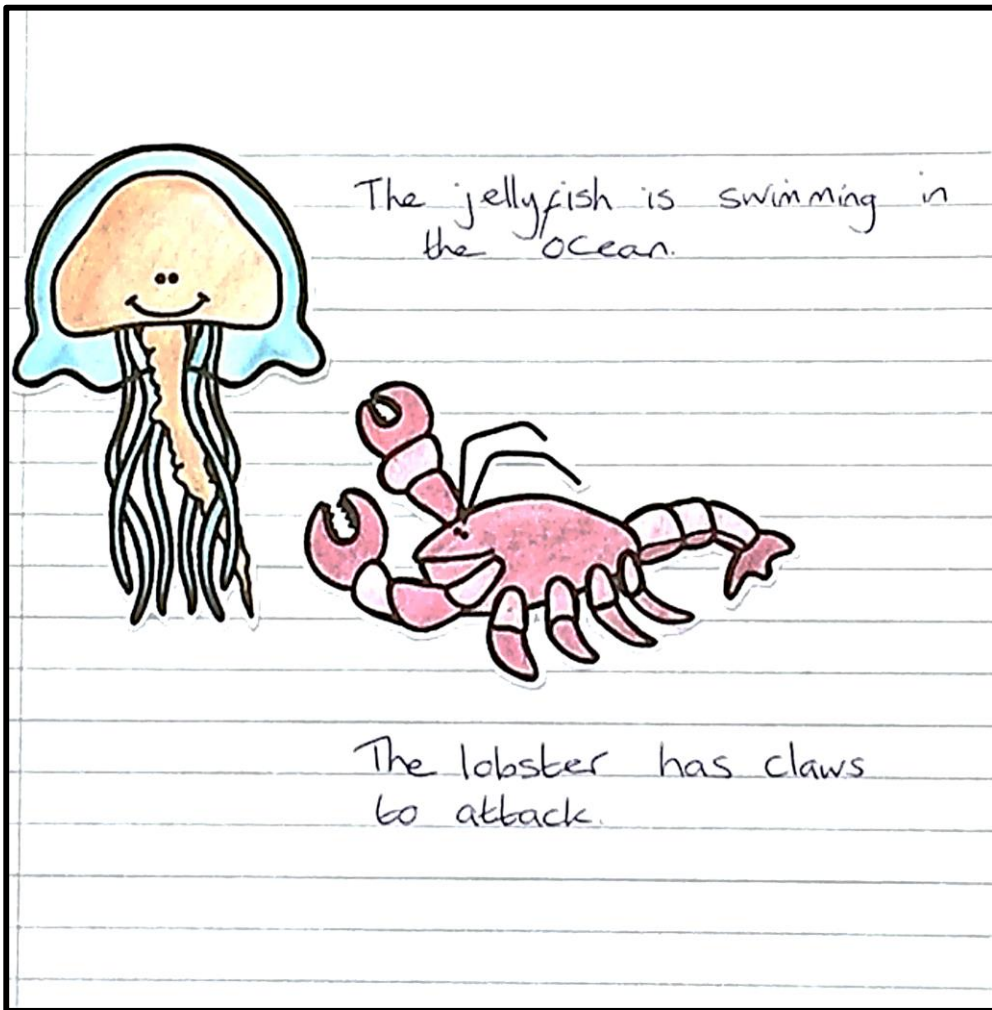 The jellyfish is swimming in
the ocean.
The lobster has claws
to attack.